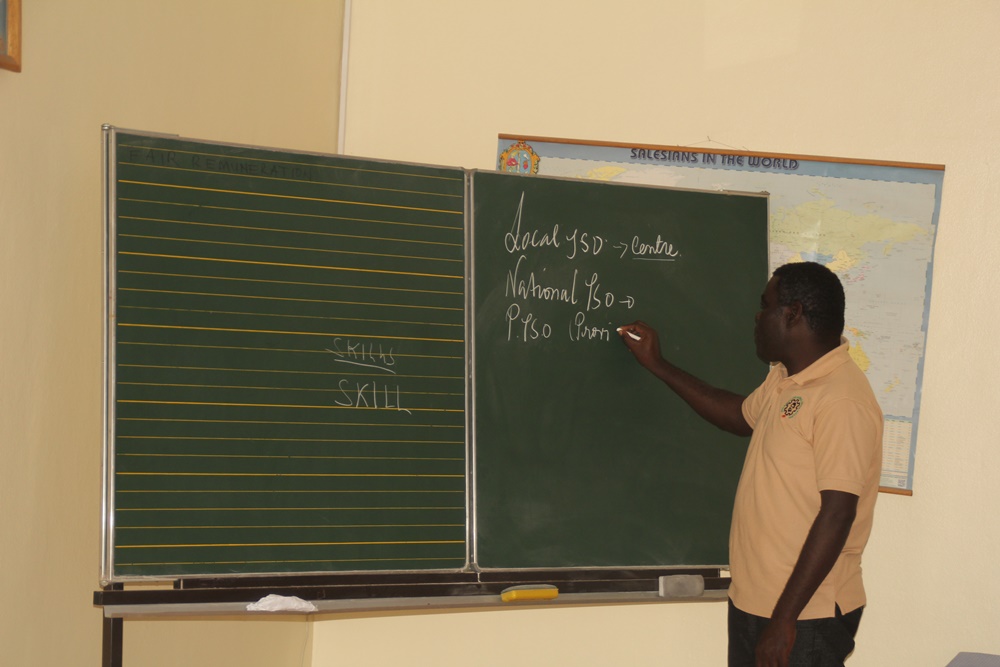 FAIR REMUNERATION
SKILLS
SKILL
SALESIANS IN THE WORLD
Local YSO → Centre.
National YSO →
P.YSO (Provi